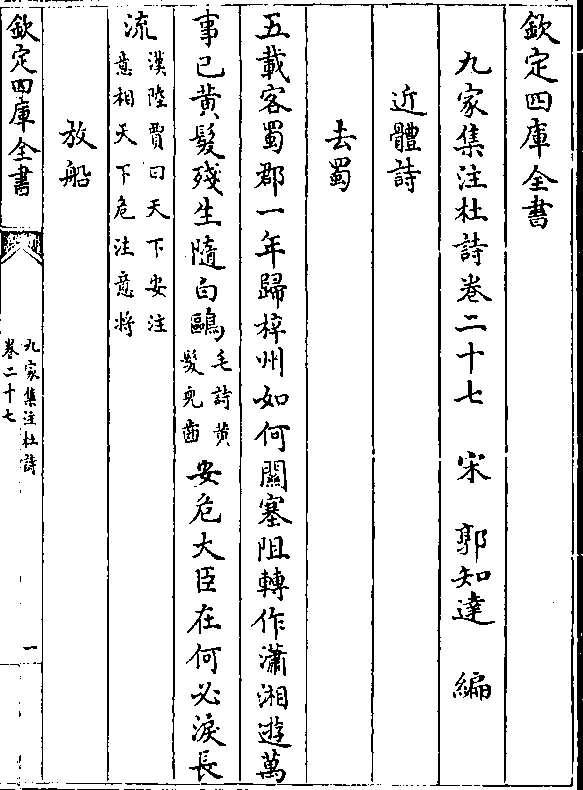 欽定四庫全書
九家集注杜詩卷二十七　宋　郭知達　編
近體詩
去蜀
五載客蜀郡一年歸梓州如何關塞阻轉作瀟湘遊萬
事已黃髮殘生隨白鷗毛詩黃髮兒齒安危大臣在何必淚長
流漢陸賈曰天下安注意相天下危注意將
放船
欽定四庫全書
九家集注杜詩
卷二十七
一